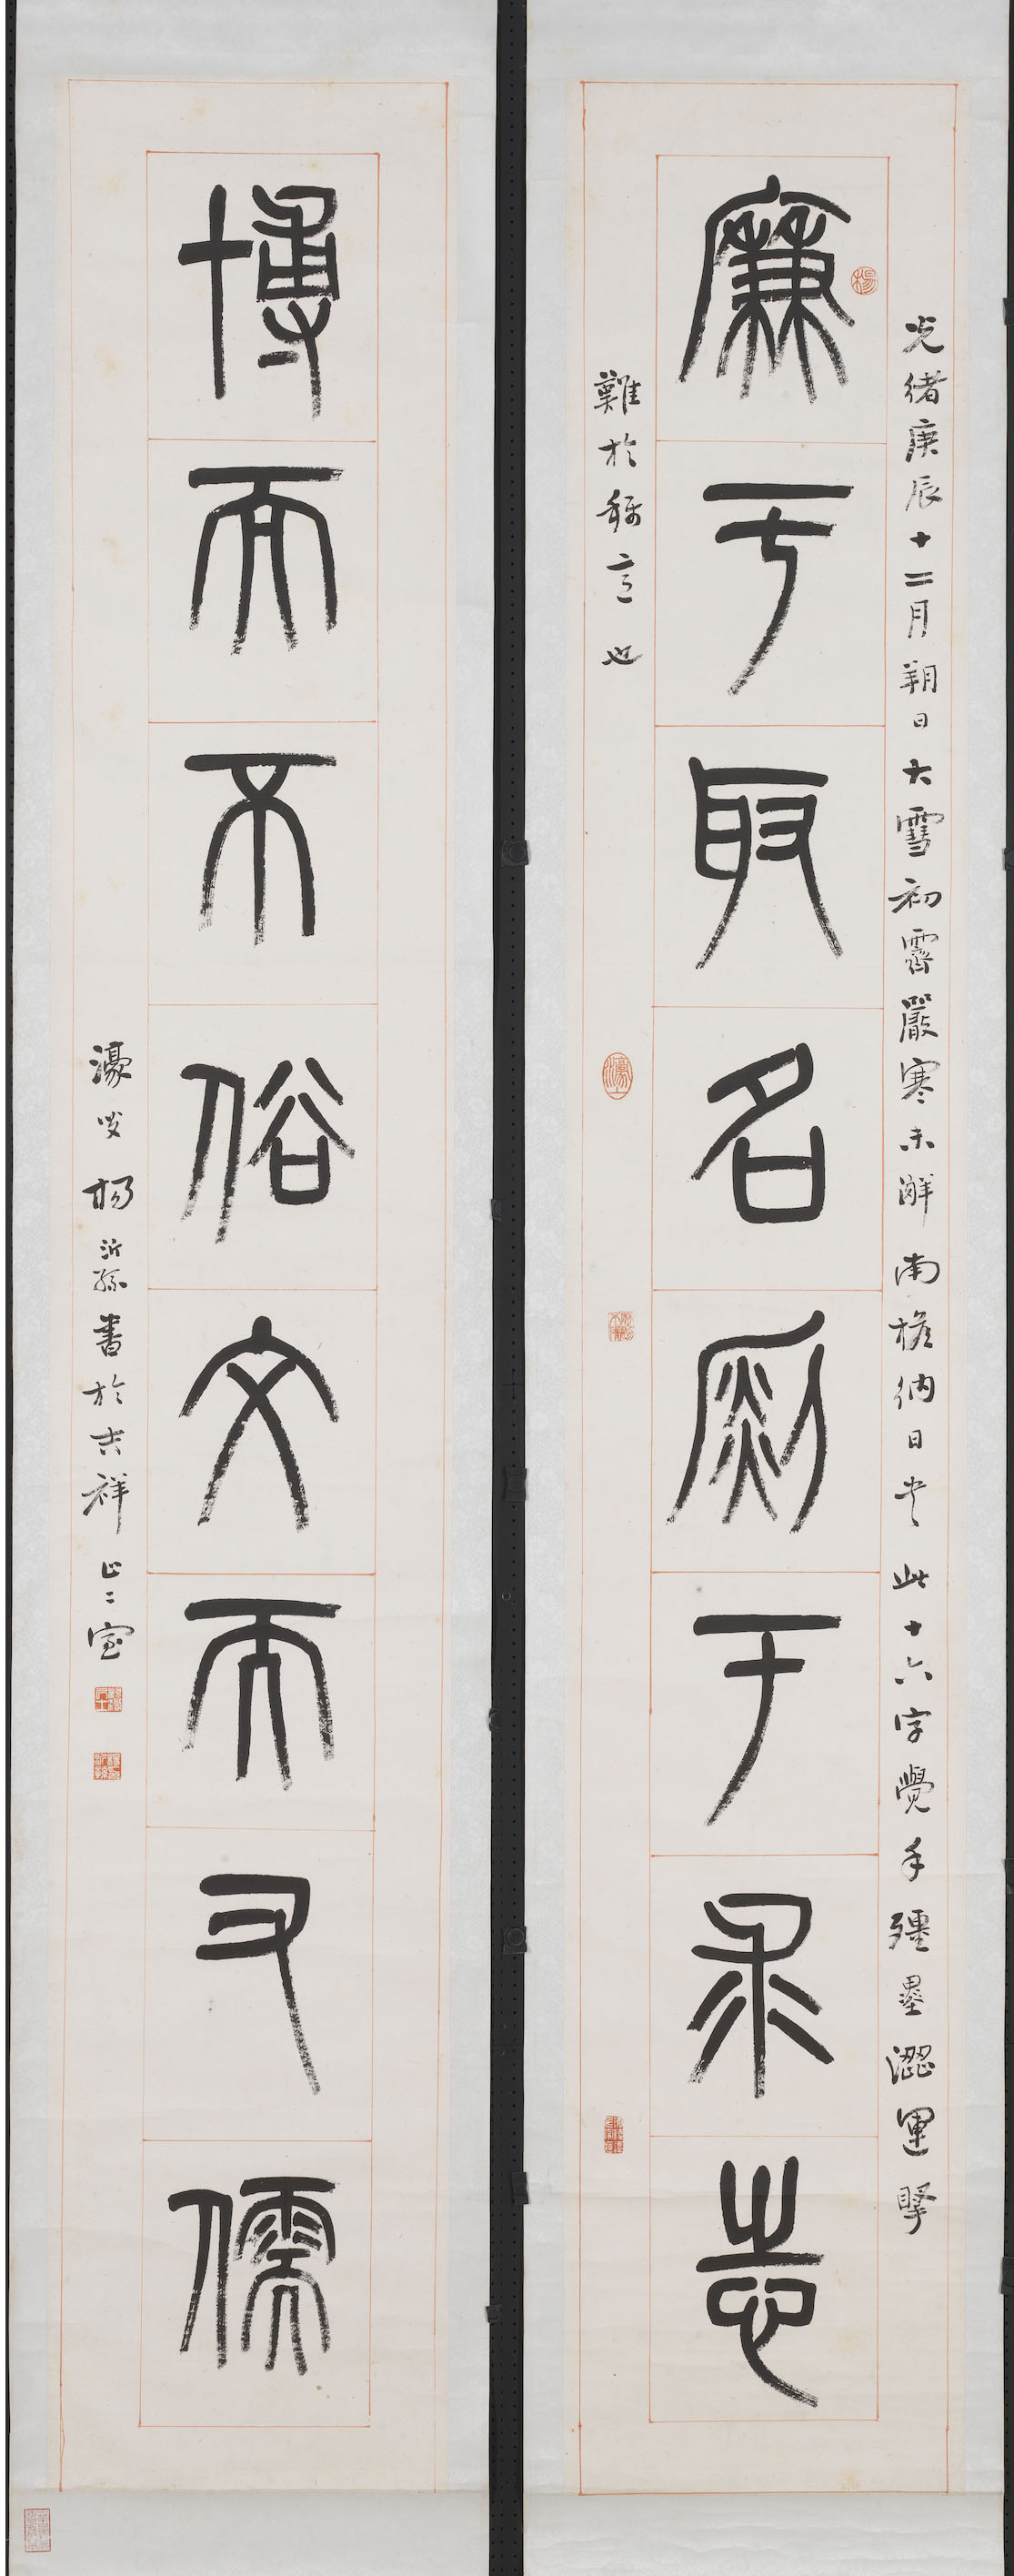 光緒庚辰十二月朔日大雪初霽嚴寒未解南檐納日書此十六字覺手殭墨澀運腕
廉于取名㓹于求志
難於稱意也
博而不俗文而又儒
濠叟楊沂孫書於吉祥止〻室
楊